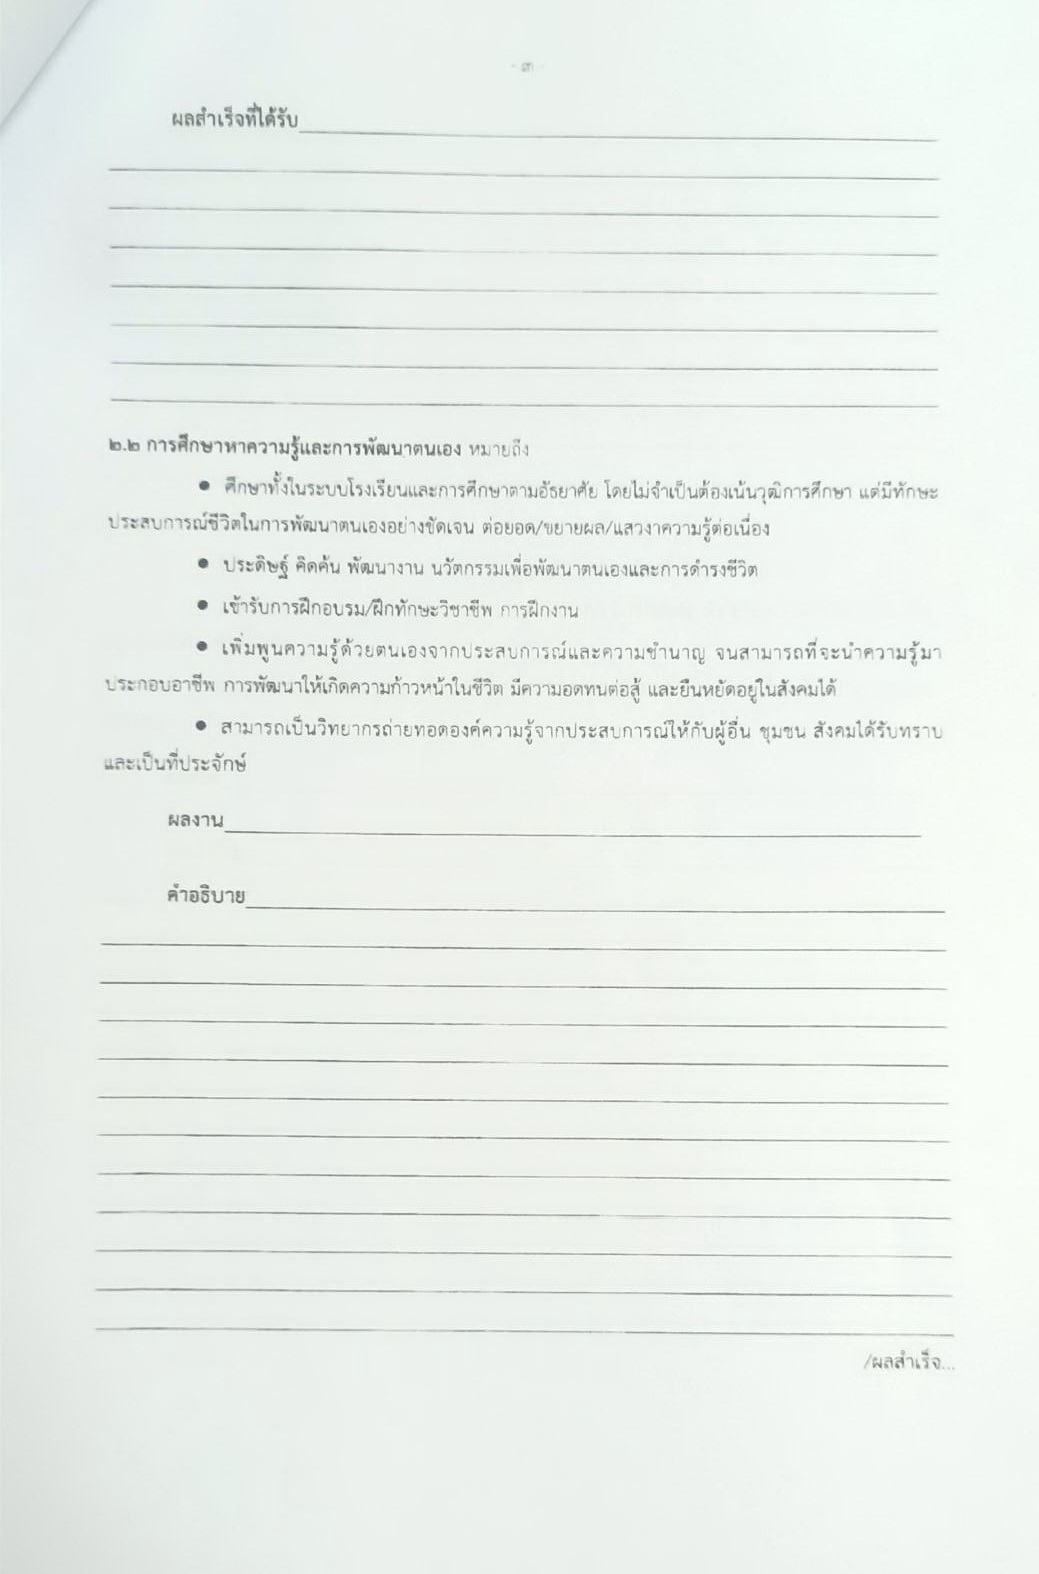 - ๓ -
ผลสำเร็จที่ได้รับ
๒.๒ การศึกษาหาความรู้และการพัฒนาตนเอง หมายถึง
● ศึกษาทั้งในระบบโรงเรียนและการศึกษาตามอัธยาศัย โดยไม่จำเป็นต้องเน้นวุฒิการศึกษา แต่มีทักษะ
ประสบการณ์ชีวิตในการพัฒนาตนเองอย่างชัดเจน ต่อยอด/ขยายผล/แสวงาความรู้ต่อเนื่อง
● ประดิษฐ์ คิดค้น พัฒนางาน นวัตกรรมเพื่อพัฒนาตนเองและการดำรงชีวิต
● เข้ารับการฝึกอบรม/ฝึกทักษะวิชาชีพ การฝึกงาน
● เพิ่มพูนความรู้ด้วยตนเองจากประสบการณ์และความชำนาญ จนสามารถที่จะนำความรู้มา
ประกอบอาชีพ การพัฒนาให้เกิดความก้าวหน้าในชีวิต มีความอดทนต่อสู้ และยืนหยัดอยู่ในสังคมได้
● สามารถเป็นวิทยากรถ่ายทอดองค์ความรู้จากประสบการณ์ให้กับผู้อื่น ชุมชน สังคมได้รับทราบ
และเป็นที่ประจักษ์
ผลงาน
คำอธิบาย
/ผลสำเร็จ...